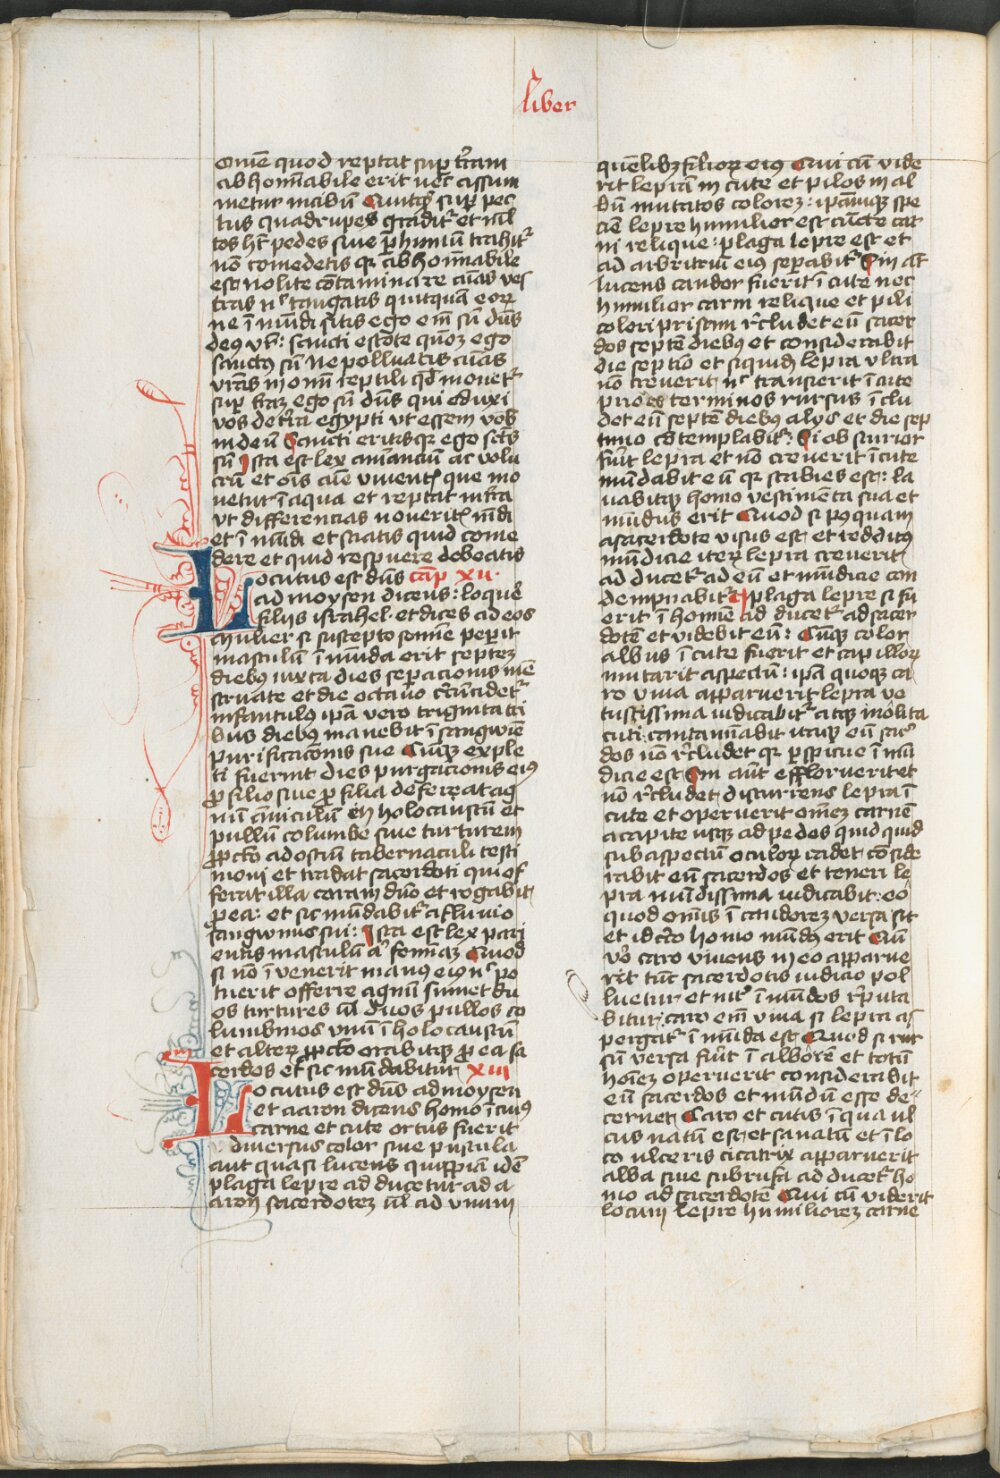 liber
Om̄e quod reptat sup̄ t̄ram
abhom̄abile erit nec assum
metur in cibū Quitq̄ꝫ sup̄ pec
tus quadrupes gradit᷑ et ml̄
tos hꝫ pedes siue p̄ humū trahit᷑
nō comedetis qꝛ abhom̄abile
est nolite cōtaminare aīas ves
tras nᶜ tangatis quitquā eoꝝ
ne īmūdi sitis ego em̄ sū dn̄s
deꝰ vr̄: sancti estote qm̄ ego
sanctꝰ sū ne polluatis aīas
vr̄as in om̄i reptili qd̄ mouet᷑
sup̄ t̄rā ego sū dn̄s qui eduxi
vos de t̄ra egypti vt essem vob̄
in deū Sancti eritis qꝛ ego sc̄tꝰ
sū Ista est lex aīanciū ac volu
crū et oīs aīe viuentꝭ que mo
uetur ī aqua et reptat in t̄ra
vt differencias noueritꝭ mūdi
et īmūdi et sciatis quid come
dere et quid respuere debeatis
Locutus est dn̄s cap̄ xii·
ad moysen dicens: loquē
filijs israhel· et dices ad eos
mulier si suscepto semīe peperit
masculū īmūda erit septeꝫ
diebꝰ iuxta dies sep̄acionis mē
struate et die octauo c̄cūcidet᷑
infantulꝰ ipā vero triginta tri
bus diebꝰ manebit ī sangwīe
purificacōnis sue Cūqꝫ exple
ti fuerint dies purgacionis eiꝰ
ꝓ filio siue ꝓ filia deferet ag
nū anniculū in holocaustū et
pullū columbe siue turturem
ꝓ pctō ad ostiū tabernaculi testi
monij et tradat sacerdoti qui of
ferat illa coram dn̄o et rogabit
ꝓ ea: et sic mūdabit᷑ a fluuio
sangwinis sui: Ista est lex pari
entis masculū aᶜ femīaꝫ Quod
si nō īuenerit manꝰ eiꝰ nᶜ po
tuerit offerre agnū sumet du
os turtures ul̄ duos pullos co
lumbinos vnū ī holocaustū
et alteꝝ ꝓ pctō orabitqꝫ ꝓ ea sa
cerdos et sic mūdabitur xiii
Locutus est dn̄s ad moysen
et aaron dicens homo ī cuiꝰ
carne et cute ortus fuerit
diuersus color siue pustula
aut quasi lucens quippiā idē
plaga lepre adducetur ad a
aron sacerdoteꝫ ul̄ ad vnum
quēlibꝫ filioꝝ eiꝰ Qui cū vide
rit leprā in cute et pilos in al
bū mutatos coloreꝫ: ipāmqꝫ spe
ciē lepre humilior est cūcte car
ni relique: plaga lepre est et
ad arbitriū eiꝰ sep̄abit᷑ Sin aūt
lucens candor fuerit ī cute nec
humilior carni relique et pili
coloris pristini r̄cludet eū sacer
dos septē diebꝰ et considerabit
die septīo et siquidꝫ lepra vltra
nō creuerit nᶜ transierit ī cute
priores terminos rursus ī clu
det eū septē diebꝰ alijs et die sep
timo cōtemplabit᷑: Si obscurior
fūit lepra et nō creuerit ī cute
mūdabit eū qꝛ scabies est: la
uabitqꝫ homo vestimēta sua et
mūdus erit Quod si pꝰquam
a sacerdote visus est et redditꝰ
mūdicie iteꝝ lepra creuerit
ad ducet᷑ ad eū et īmūdicie con
dempnabit᷑ plaga lepre si fu
erit ī homīe ad ducet᷑ ad sacer
dotē et videbit eū: Cūqꝫ color
albus ī cute fuerit et capilloꝝ
mutarit aspectū: ipā quoqꝫ ca
ro viua apparuerit lepra ve
tustissima iudicabit᷑ atqꝫ inolita
cuti contaminabit itaqꝫ eū sac᷑
dos nō r̄cludet qꝛ p̄spicue īmū
dicie est Sin aūt effloruerit et
nō r̄cludet discurrens lepra ī
cute et operuerit omēꝫ carnē
a capite usqꝫ ad pedes quidquid
sub aspectū oculoꝝ cadet cōside
rabit eū sacerdos et teneri le
pra mūdissima iudicabit: eo
quod omīs ī candoreꝫ versa sit
et idcͦo homo mūdꝰ erit Qn̄
vͦo caro viuens in eo apparue
rit tūc sacerdotis iudicio pol
luetur et int᷑ īmūdos r̄puta
bitur: caro em̄ viua si lepra as
pergat᷑ īmūda est Quod si rur
sū versa fūit ī alborē et totū
hoīeꝫ operuerit considerabit
eū sacerdos et mūdū esse de
cernet Caro et cutis ī qua ul
cus natū est et sanatū et ī lo
co ulceris cicatrix apparuerit
alba siue subrufa adducet᷑ ho
mo ad sacerdotē Qui cū viderit
locum lepre humilioreꝫ carne